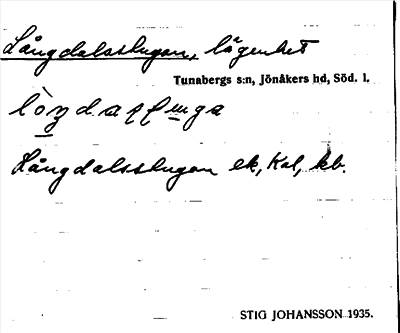 Långdalsstugan, lägenhet
Tunabergs s:n, Jönåkers hd, Söd. l.
Långdalsstugan ek, Kal, kb.
STIG JOHANSSON 1935.